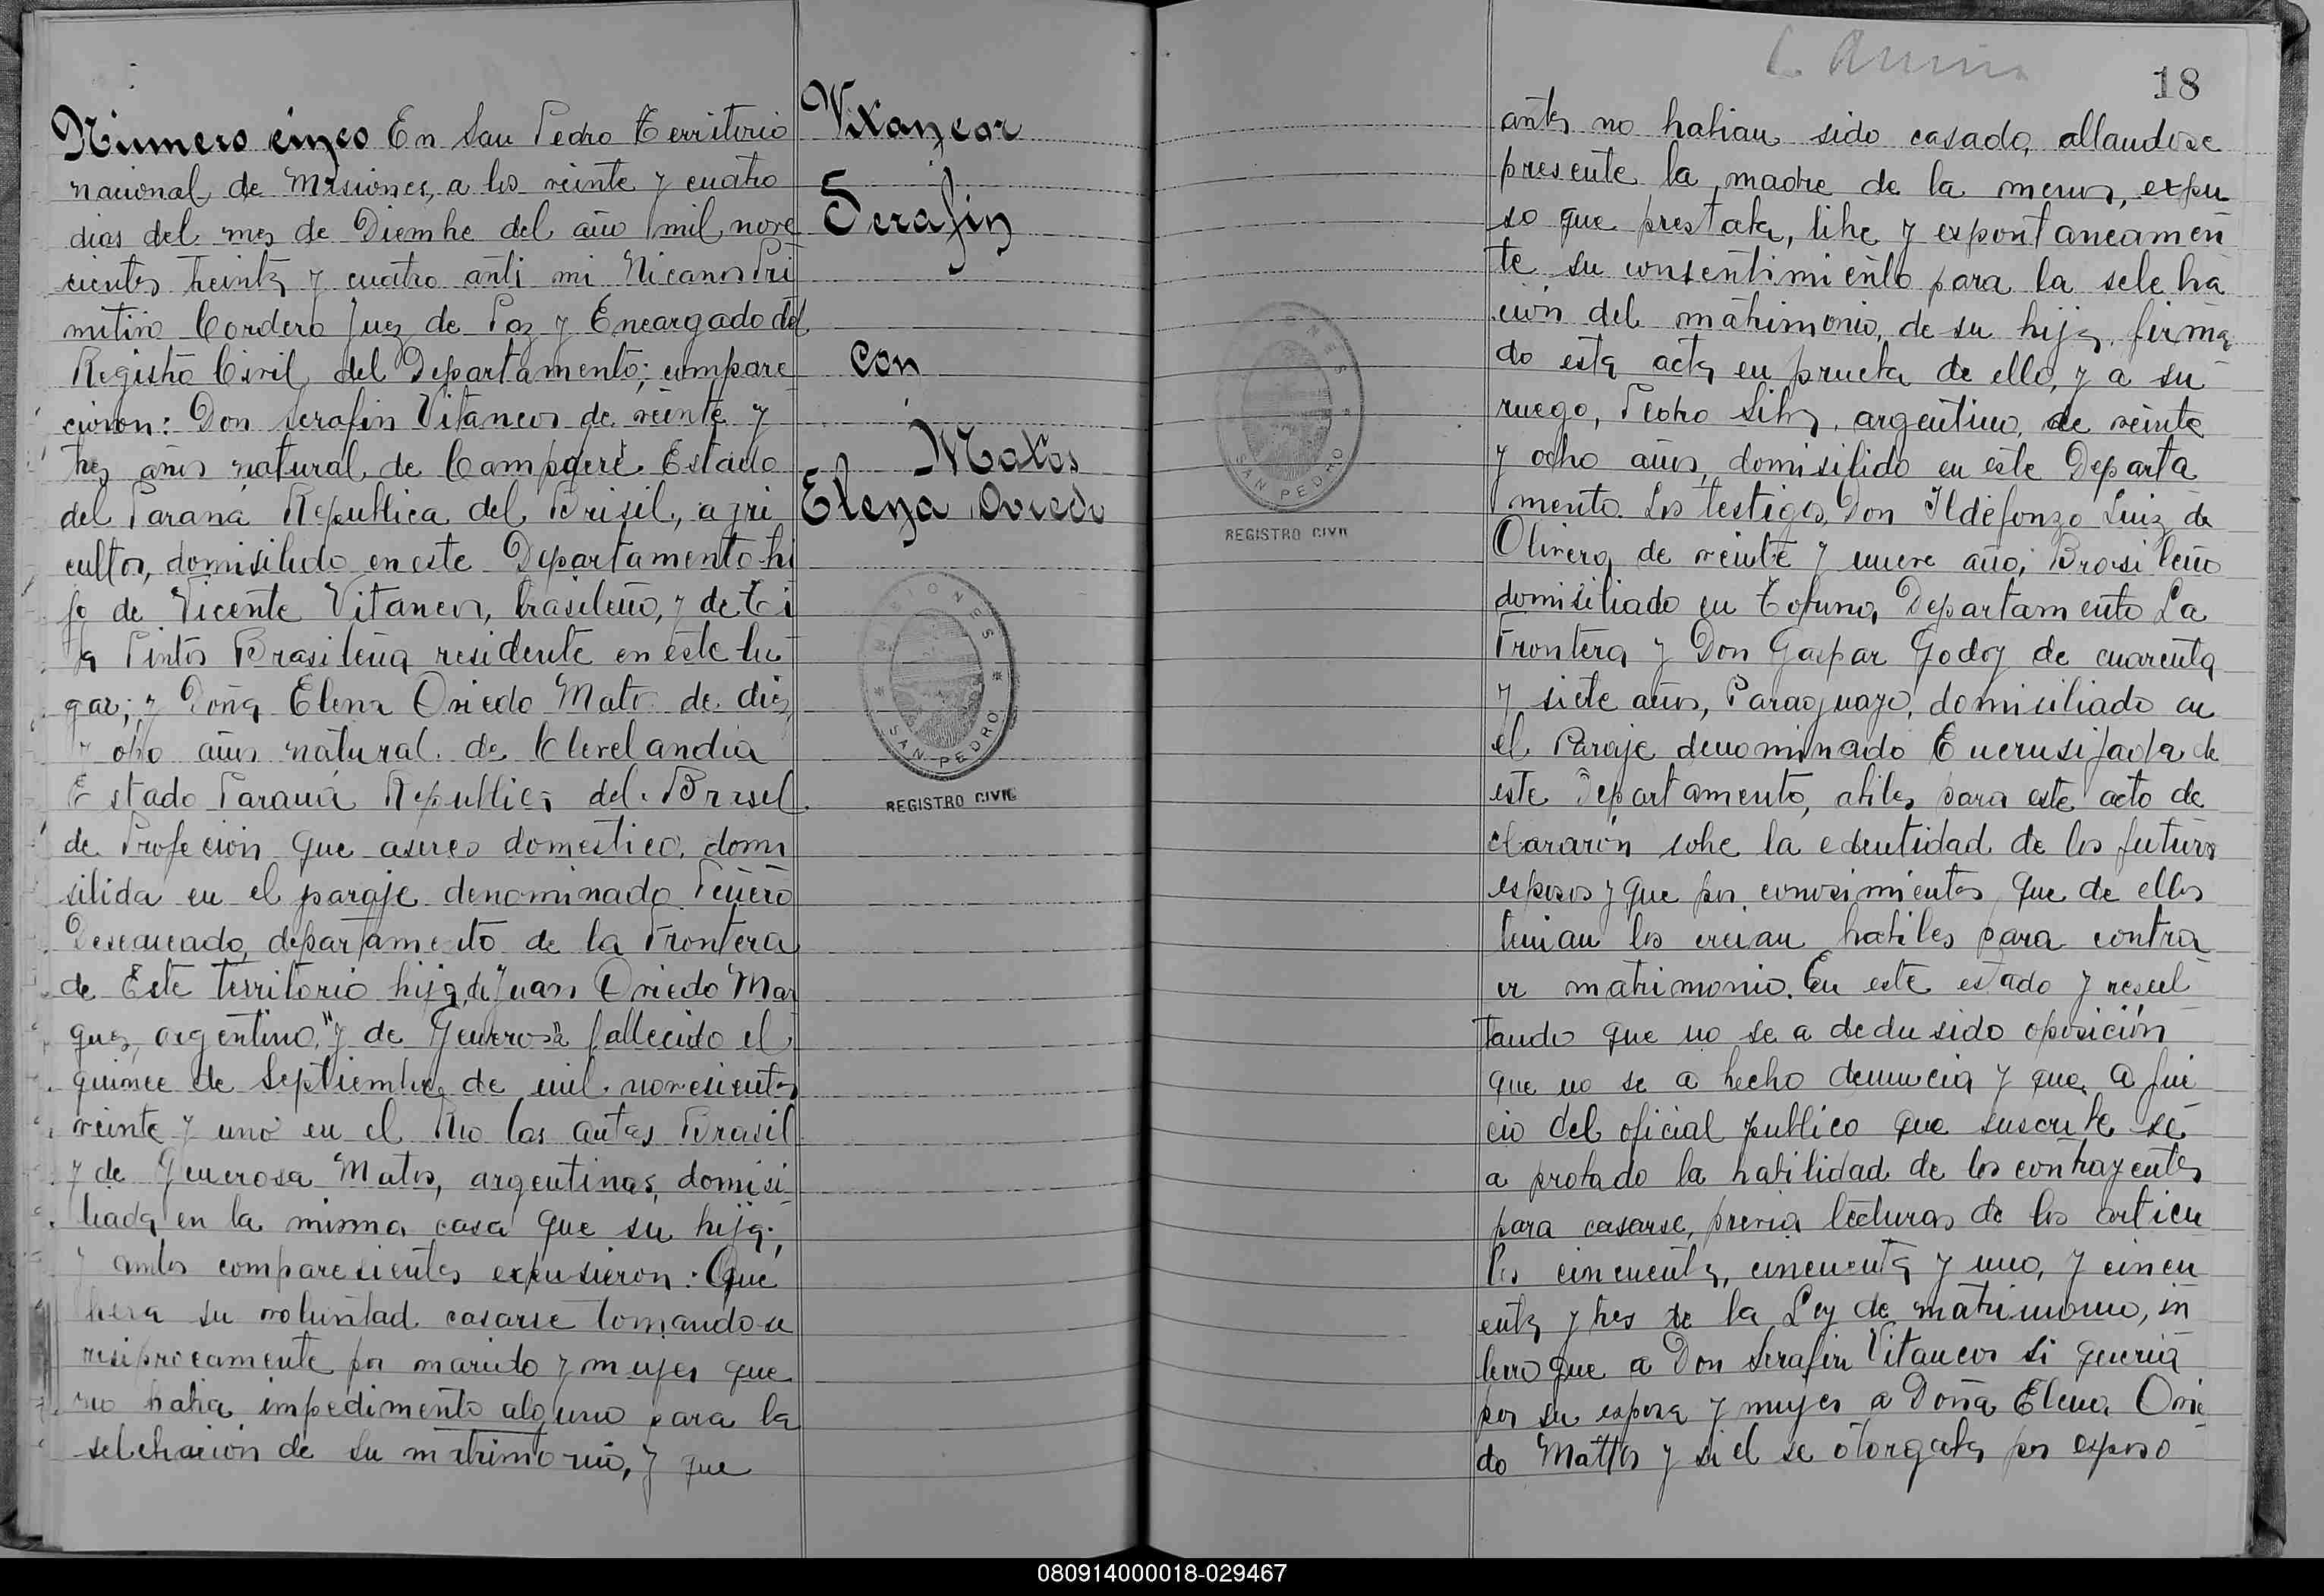 Número cinco En San Pedro Territorio
nacional de Misiones, a los veinte y cuatro
dias del mes de Diembre del año mil nove
cientos treinta y cuatro anti mi Nicanor Pri
mitivo Cordero Juez de Paz y Encargado del
Registro Civil del Departamento; compare
cieron: Don Serafin Vitancor de veinte y
tres años natural de Campgeré Estado
del Paraná Republica del Brisil, agri
cultor, domisilido en este Departamento hi
jo de Vicente Vitancor, brasileño, y de
Pintos Brasileña residente en este lu
gar; y Doña Elena Oviedo Mato de diez
y oho años natural de Clevelandia
Estado Paraná Republica del Brasel
de Profeción que aseres domestico, domi
silida en el paraje denominado Piñero
departamento de la Frontera
de Este territorio hija de Juan Oviedo Mar
ques, argentino, "y de Generosa" fallecido el
quince de Septiembre de mil novesientos
veinte y uno en el Rio las antas Brasil
y de Generosa Matos, argentinas, domisi
liada en la misma casa que su hija;
y ambos comparesientes expusieron: Que
hera su voluntad casarse tomandose
resiprocamente por marido y mujer que
no habia impedimento alguno para la
selebración de su matrimonio, y que
Vitancor
Serafin
con
Matos
Elena Oviedo
MISIONES
SAN PEDRO
REGISTRO CIVIL
18
antes no habian sido casado, allandose
presente la madre de la menor, expu
so que prestaba, libre y expontaneamen
te su consentimiento para la selebra
cion del matrimonio, de su hija, firma
do esta acta en prueba de ello, y a su
ruego, Pedro Silva, argentino, de veinte
y ocho años, domisilido en este Departa
mento. Los testigos, Don Ildefonzo Luiz de
Olivera de veinte y nueve año, Brasileño
domisiliado en Departamento La
Frontera y Don Gaspar Godoy de cuarenta
y siete años, Paraguayo, domisiliado en
el Paraje denominado Encrusijada de
este Departamento, abiles para este acto de
clararón sobre la edentidad de los futuros
esposos y que por conosimientos que de ellos
tenian los creian habiles para contra
er matrimonio. En este estado y resul
tando que no se a dedusido oposición
que no se a hecho denuncia y que a jui
cio del oficial publico que suscribe se
a probado la habilidad de los contrayentes
para casarse, previa lecturas de los articu
los cincuenta, cincuenta y uno, y cincu
enta y tres de la Ley de matrimonio, in
terro que a Don Serafin Vitancor si queria
por su esposa y mujer a Doña Elena Ovie
do Mattos y si el se otorgaba por esposo
MISIONES
SAN PEDRO
REGISTRO CIVIL
080914000018-029467